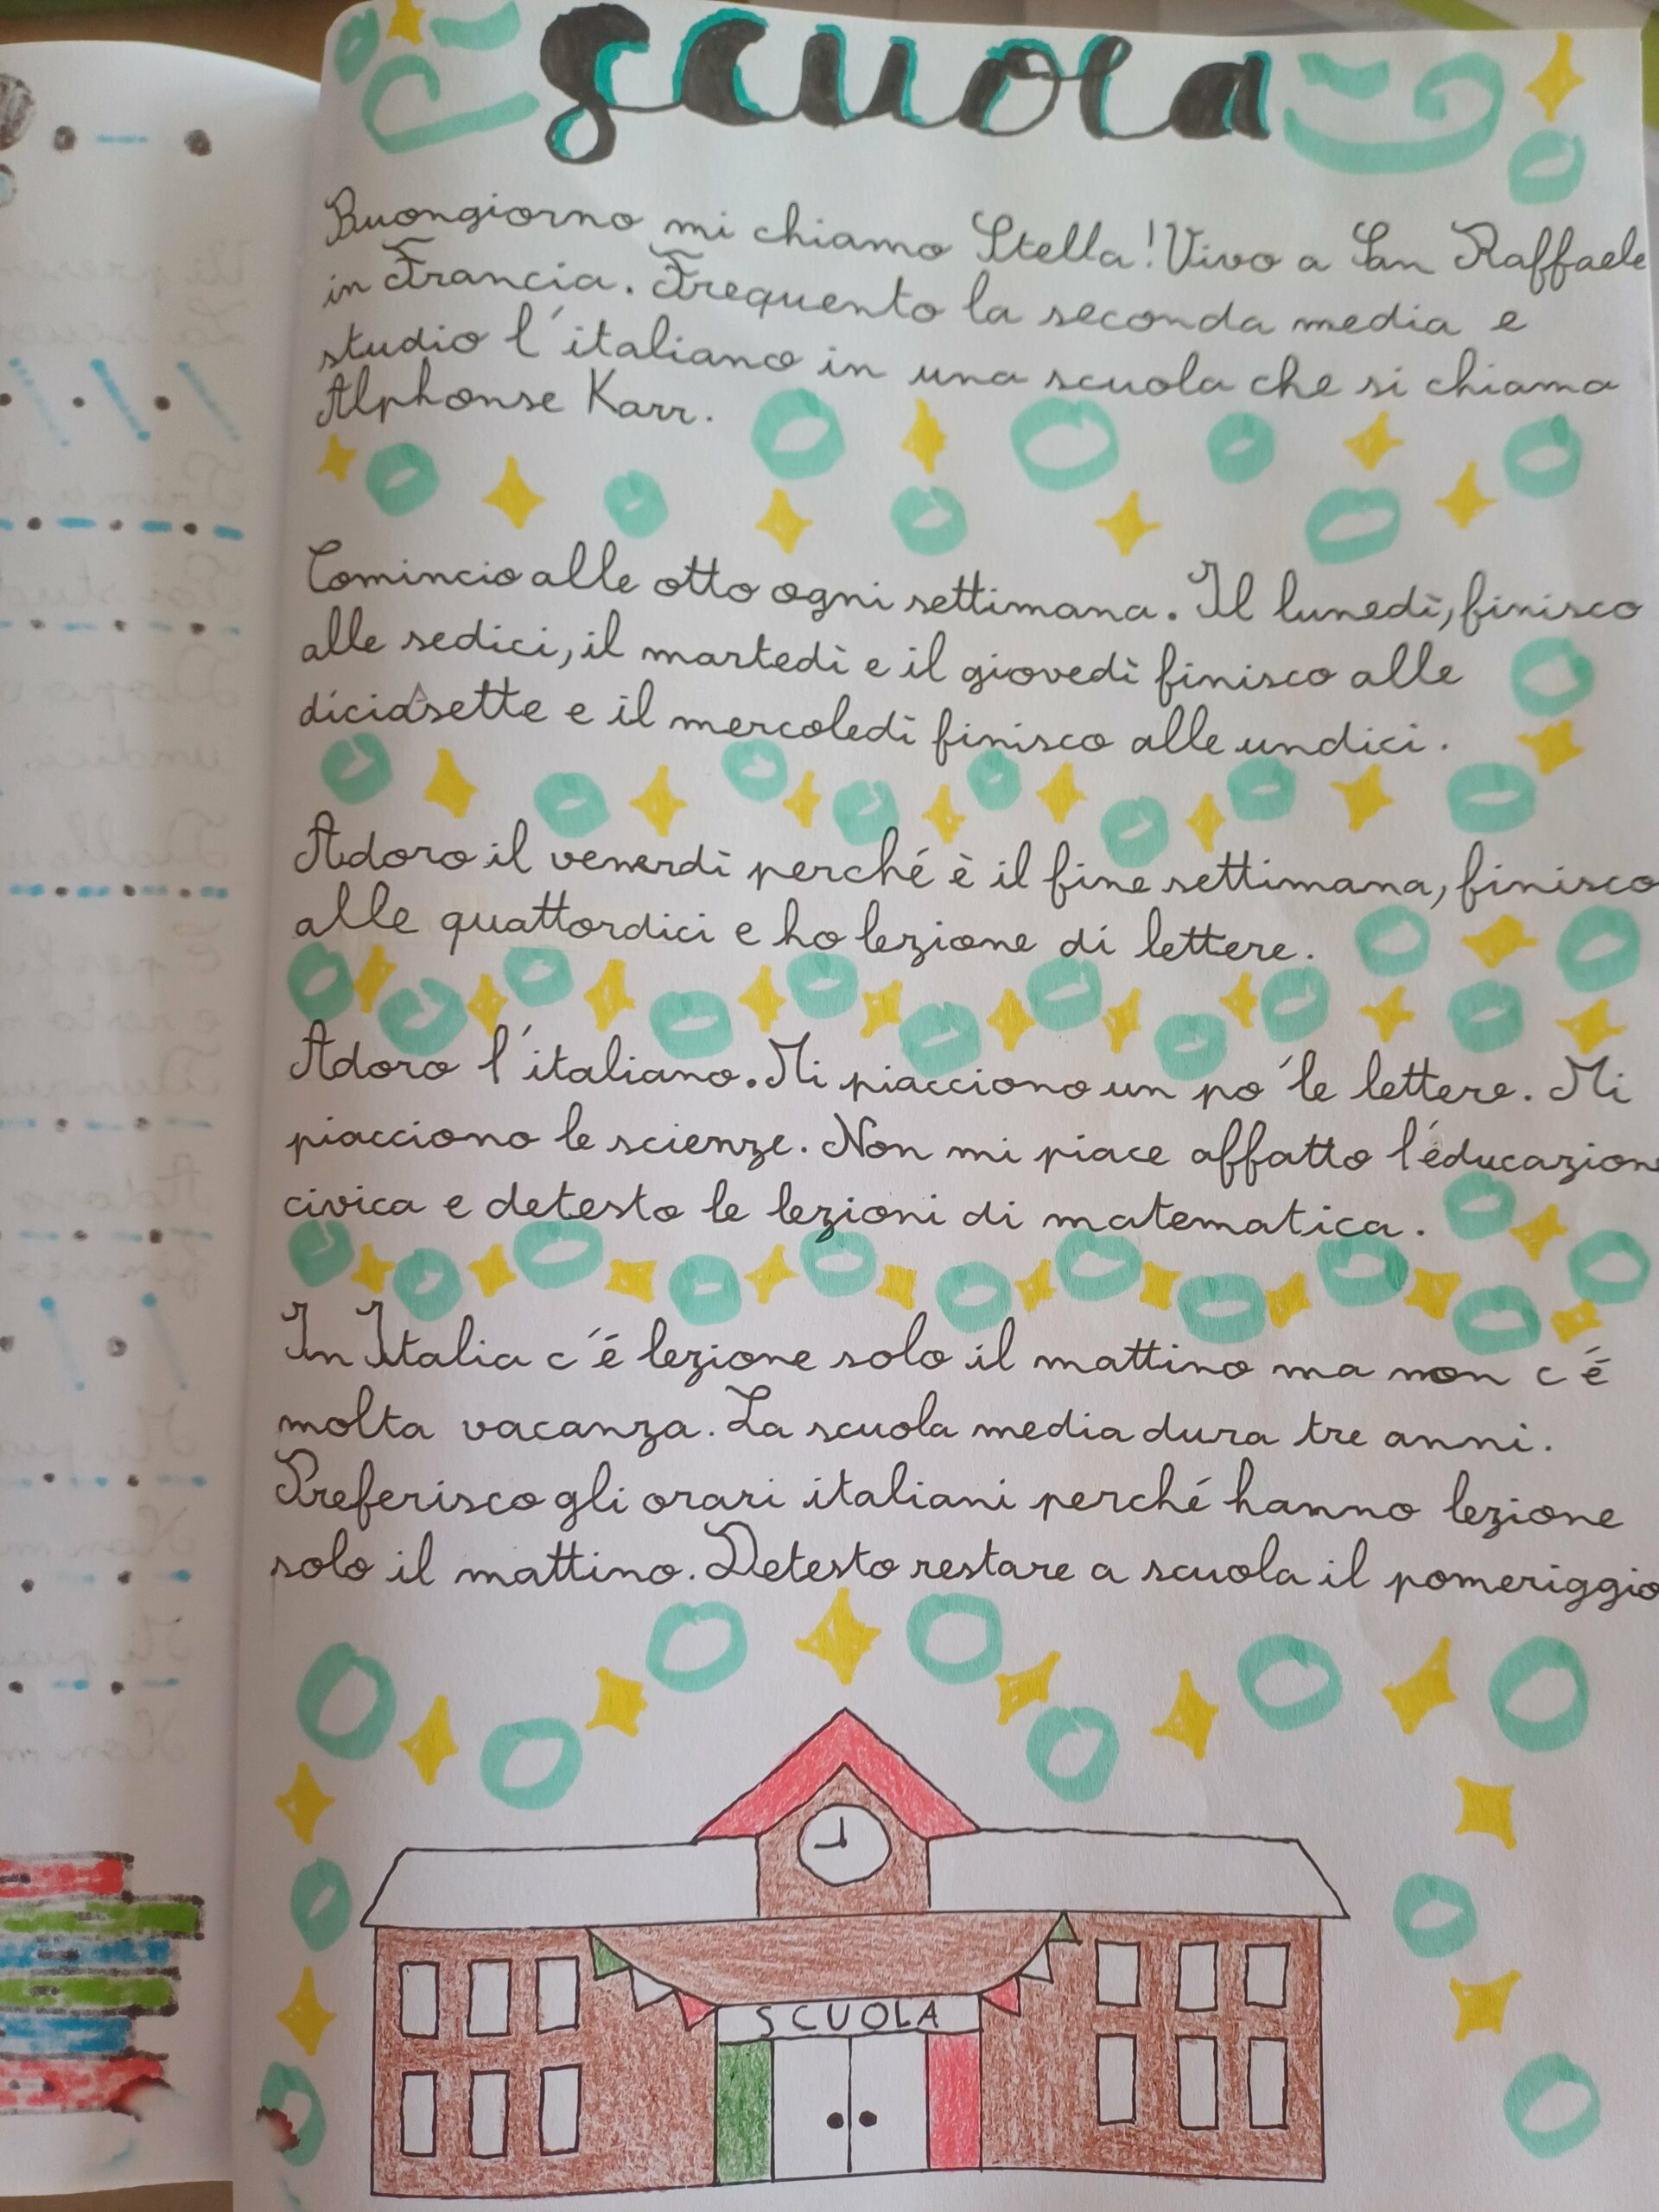 scuola
Buongiorno mi chiamo Stella! Vivo a San Raffaele
in Francia. Frequento la seconda media e
studio l'italiano in una scuola che si chiama
Alphonse Karr.
Comincio alle otto ogni settimana. Il lunedì, finisco
alle sedici, il martedì e il giovedì finisco alle
diciassette e il mercoledì finisco alle undici.
Adoro il venerdì perché è il fine settimana, finisco
alle quattordici e ho lezione di lettere.
Adoro l'italiano. Mi piacciono un po' le lettere. Mi
piacciono le scienze. Non mi piace affatto l'éducazione
civica e detesto le lezioni di matematica.
In Italia c'é lezione solo il mattino ma non c'é
molta vacanza. La scuola media dura tre anni.
Preferisco gli orari italiani perché hanno lezione
solo il mattino. Detesto restare a scuola il pomeriggio
SCUOLA